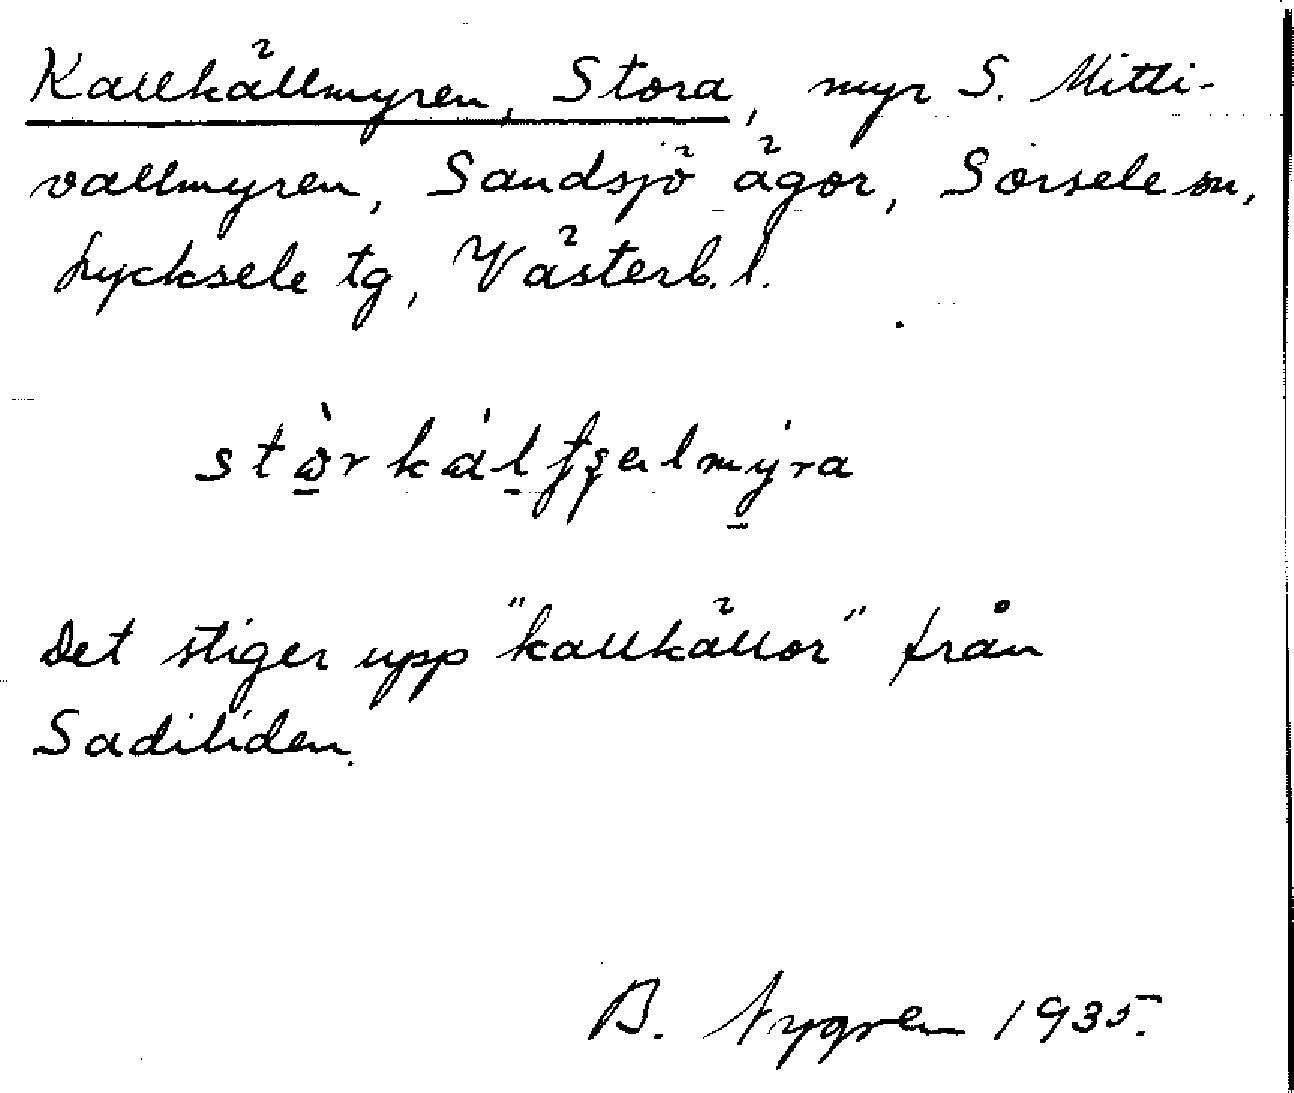 Kallkällmyren, Stora, myr S. Mitti-
vallmyren, Sandsjö ägor, Sorsele sn,
Lycksele tg, Västerb. l.
Det stiger upp "kallkällor" från
Sadiliden.
B. Nygren 1935.